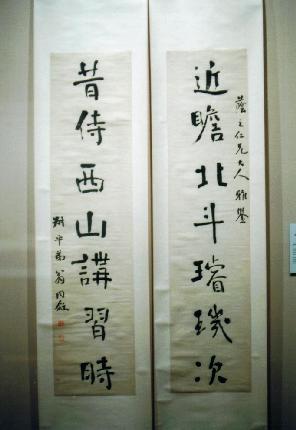 之仁兄大人雅鑒
近瞻北斗璿璣次
昔侍西山講習時
叔平弟翁同龢